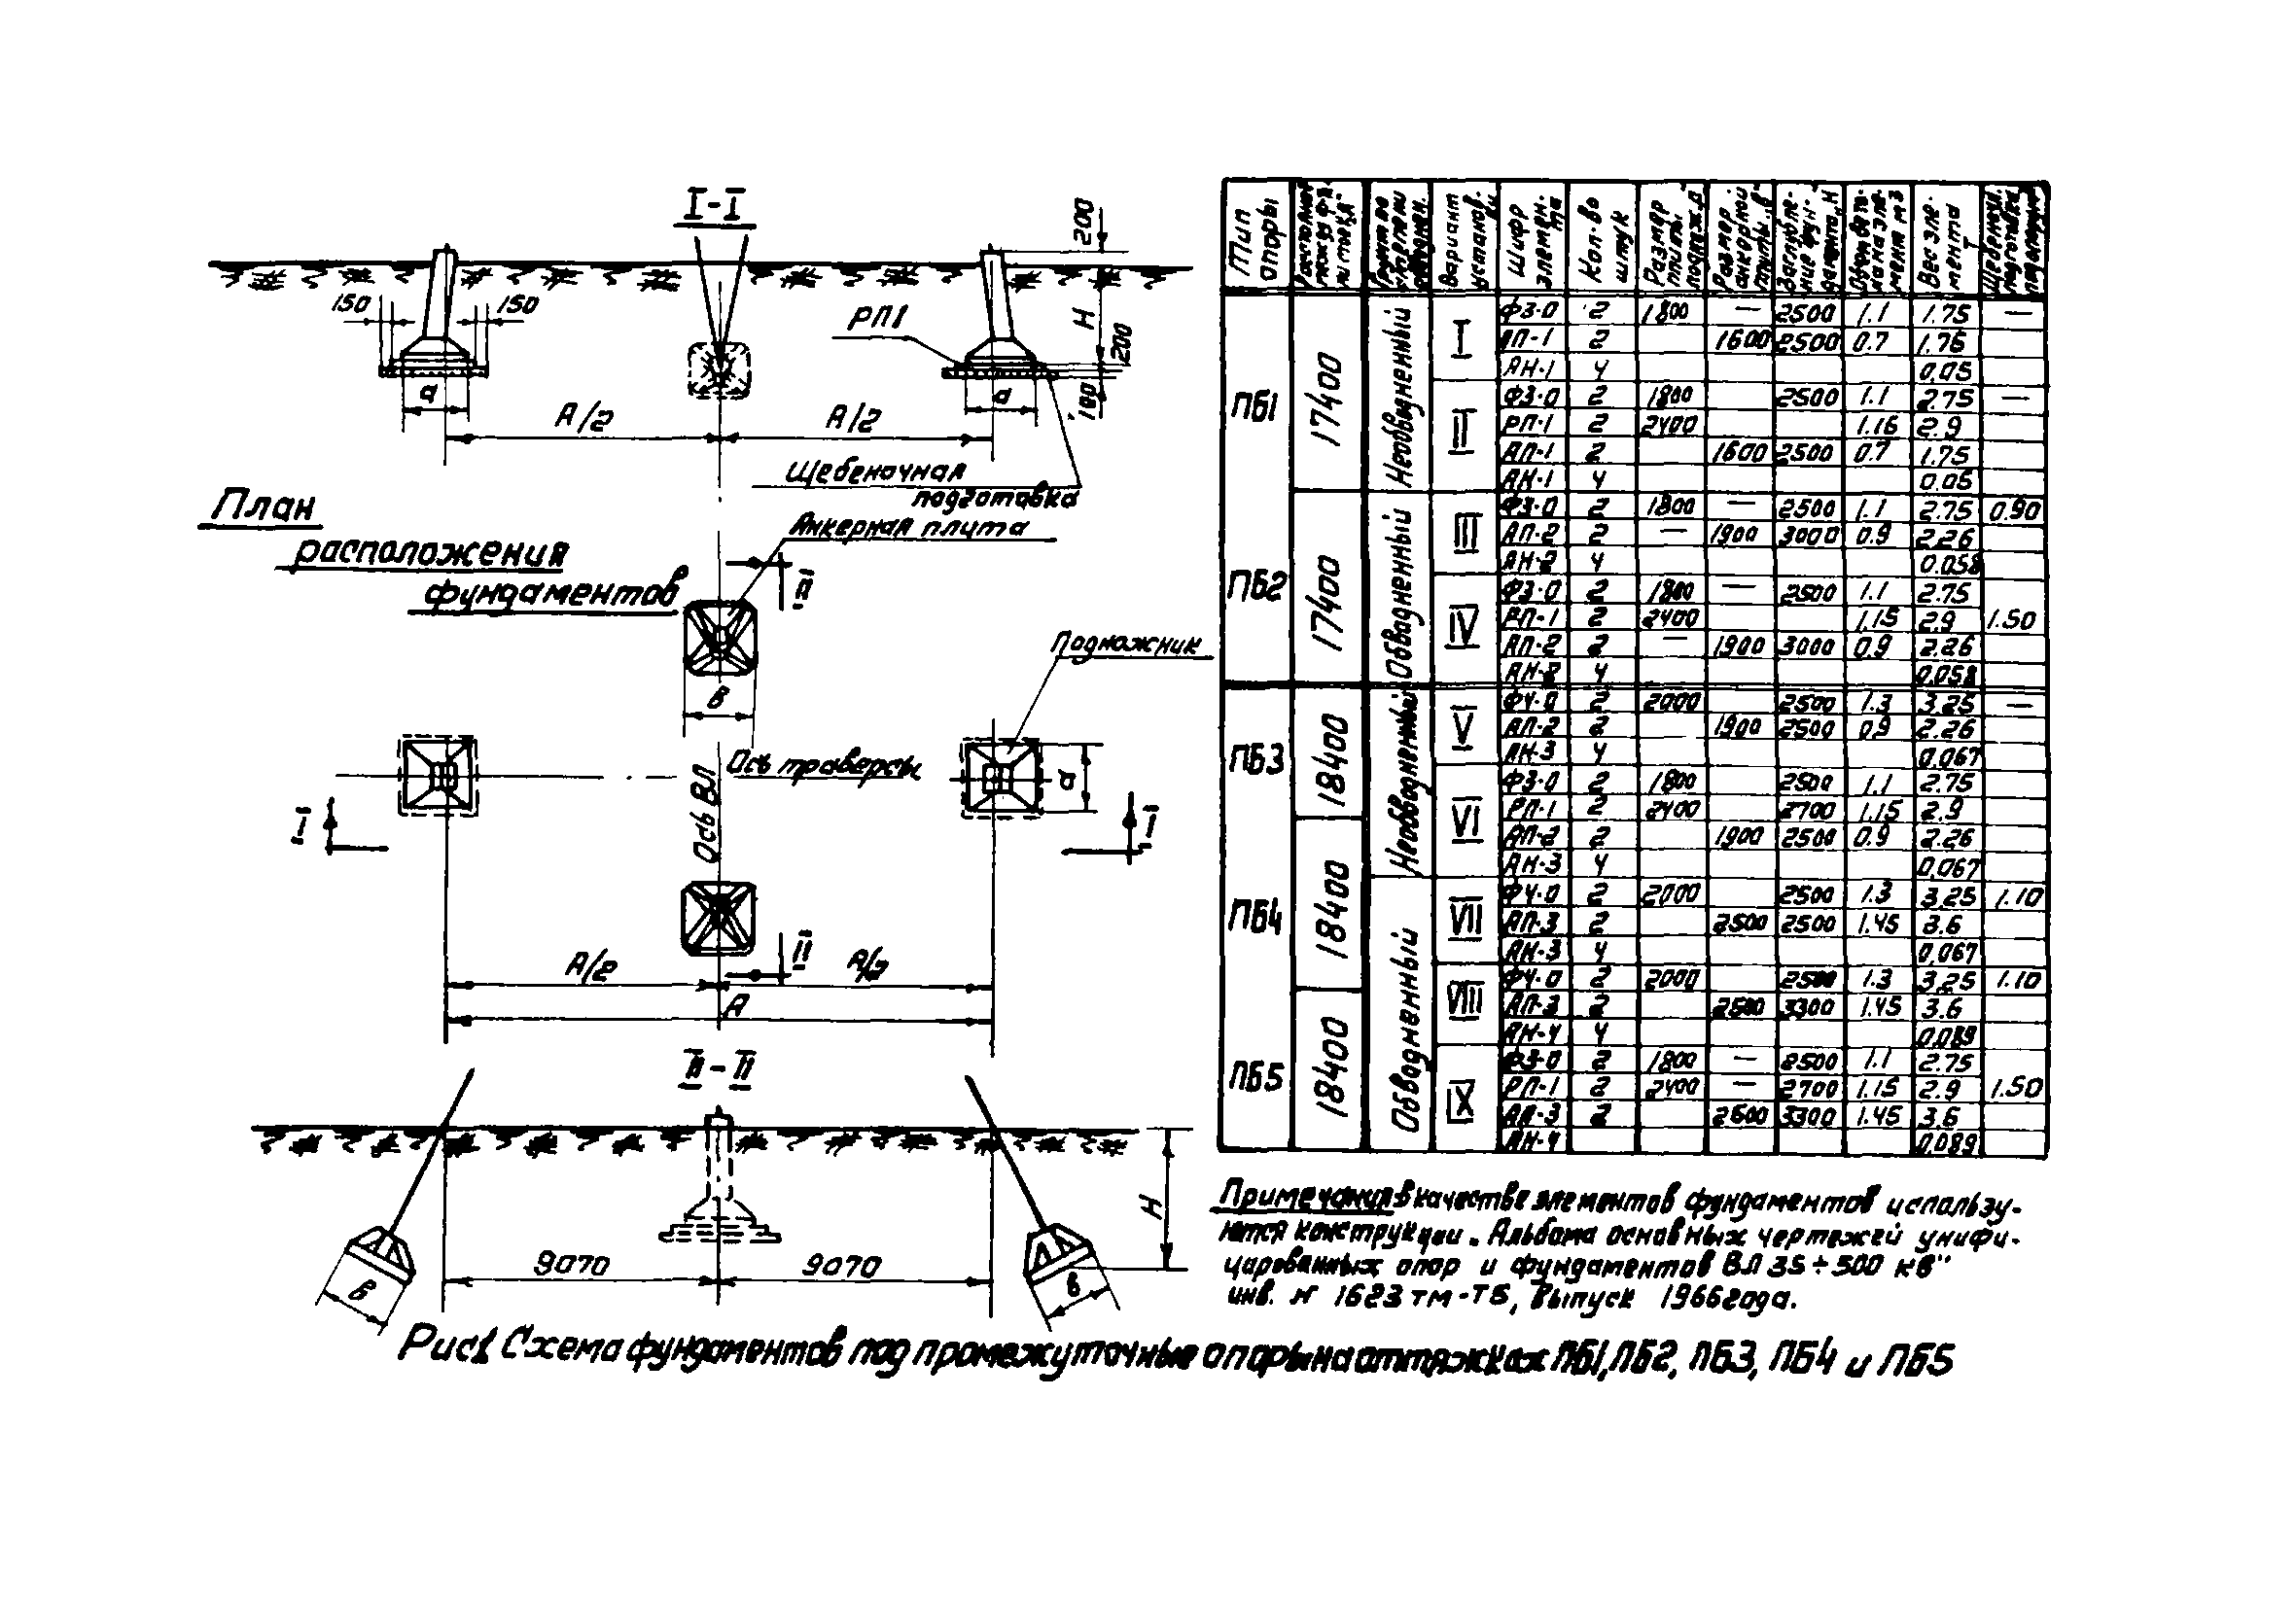 I-I
200
150
150
РП1
Н
200
100
а
а
А/2
А/2
Щебеночная
подготовка
План
расположения
фундаментов
Анкерная плита
II
Подножник
В
Ось ВЛ
Ось траверсы
а
I
I
II
А/2
А/2
А
II-II
9070
9070
Н
В
в
Тип опоры
Вариант установ.
Шифр элемен-та
Кол-во штук
Размер плиты
Размер анкорной плиты „в"
Вес эле-мента Т
ПБ1 17400 Необводненный
I Ф3-0 2 1800 — 2500 1.1 1.75 —
АП-1 2 1600 2500 0.7 1.76
АН-1 4 0,05
II Ф3-0 2 1800 2500 1.1 2.75 —
РП-1 2 2400 1.16 2.9
АП-1 2 1600 2500 0.7 1.75
АН-1 4 0.05
ПБ2 17400 Обводненный
III Ф3-0 2 1800 — 2500 1.1 2.75 0.90
АП-2 2 — 1900 3000 0.9 2.26
АН-2 4 0.058
IV Ф3-0 2 1800 — 2500 1.1 2.75
РП-1 2 2400 1.15 2.9 1.50
АП-2 2 — 1900 3000 0.9 2.26
АН-2 4 0,058
ПБ3 18400 Необводненный
V Ф4-0 2 2000 2500 1.3 3.25 —
АП-2 2 1900 2500 0,9 2.26
АН-3 4 0.067
VI Ф3-0 2 1800 2500 1.1 2.75
РП-1 2 2400 2700 1.15 2.9
АП-2 2 1900 2500 0.9 2.26
АН-3 4 0,067
ПБ4 18400 Обводненный
VII Ф4-0 2 2000 2500 1.3 3,25 1.10
АП-3 2 2500 2500 1.45 3.6
АН-3 4 0,067
VIII Ф4-0 2 2000 2500 1.3 3,25 1.10
АП-3 2 2500 3300 1.45 3.6
АН-4 4 0,089
ПБ5 18400
IX Ф3-0 2 1800 — 2500 1.1 2.75
РП-1 2 2400 — 2700 1.15 2.9 1.50
АП-3 2 2600 3300 1.45 3.6
АН-4 0,089
Примечания: в качестве элементов фундаментов использу-
ются конструкции „Альбома основных чертежей унифи-
цированных опор и фундаментов ВЛ 35÷500 кв"
инв. № 1623 тм-Т5, Выпуск 1966 года.
Рис1 Схема фундаментов под промежуточные опоры на оттяжках ПБ1, ПБ2, ПБ3, ПБ4 и ПБ5